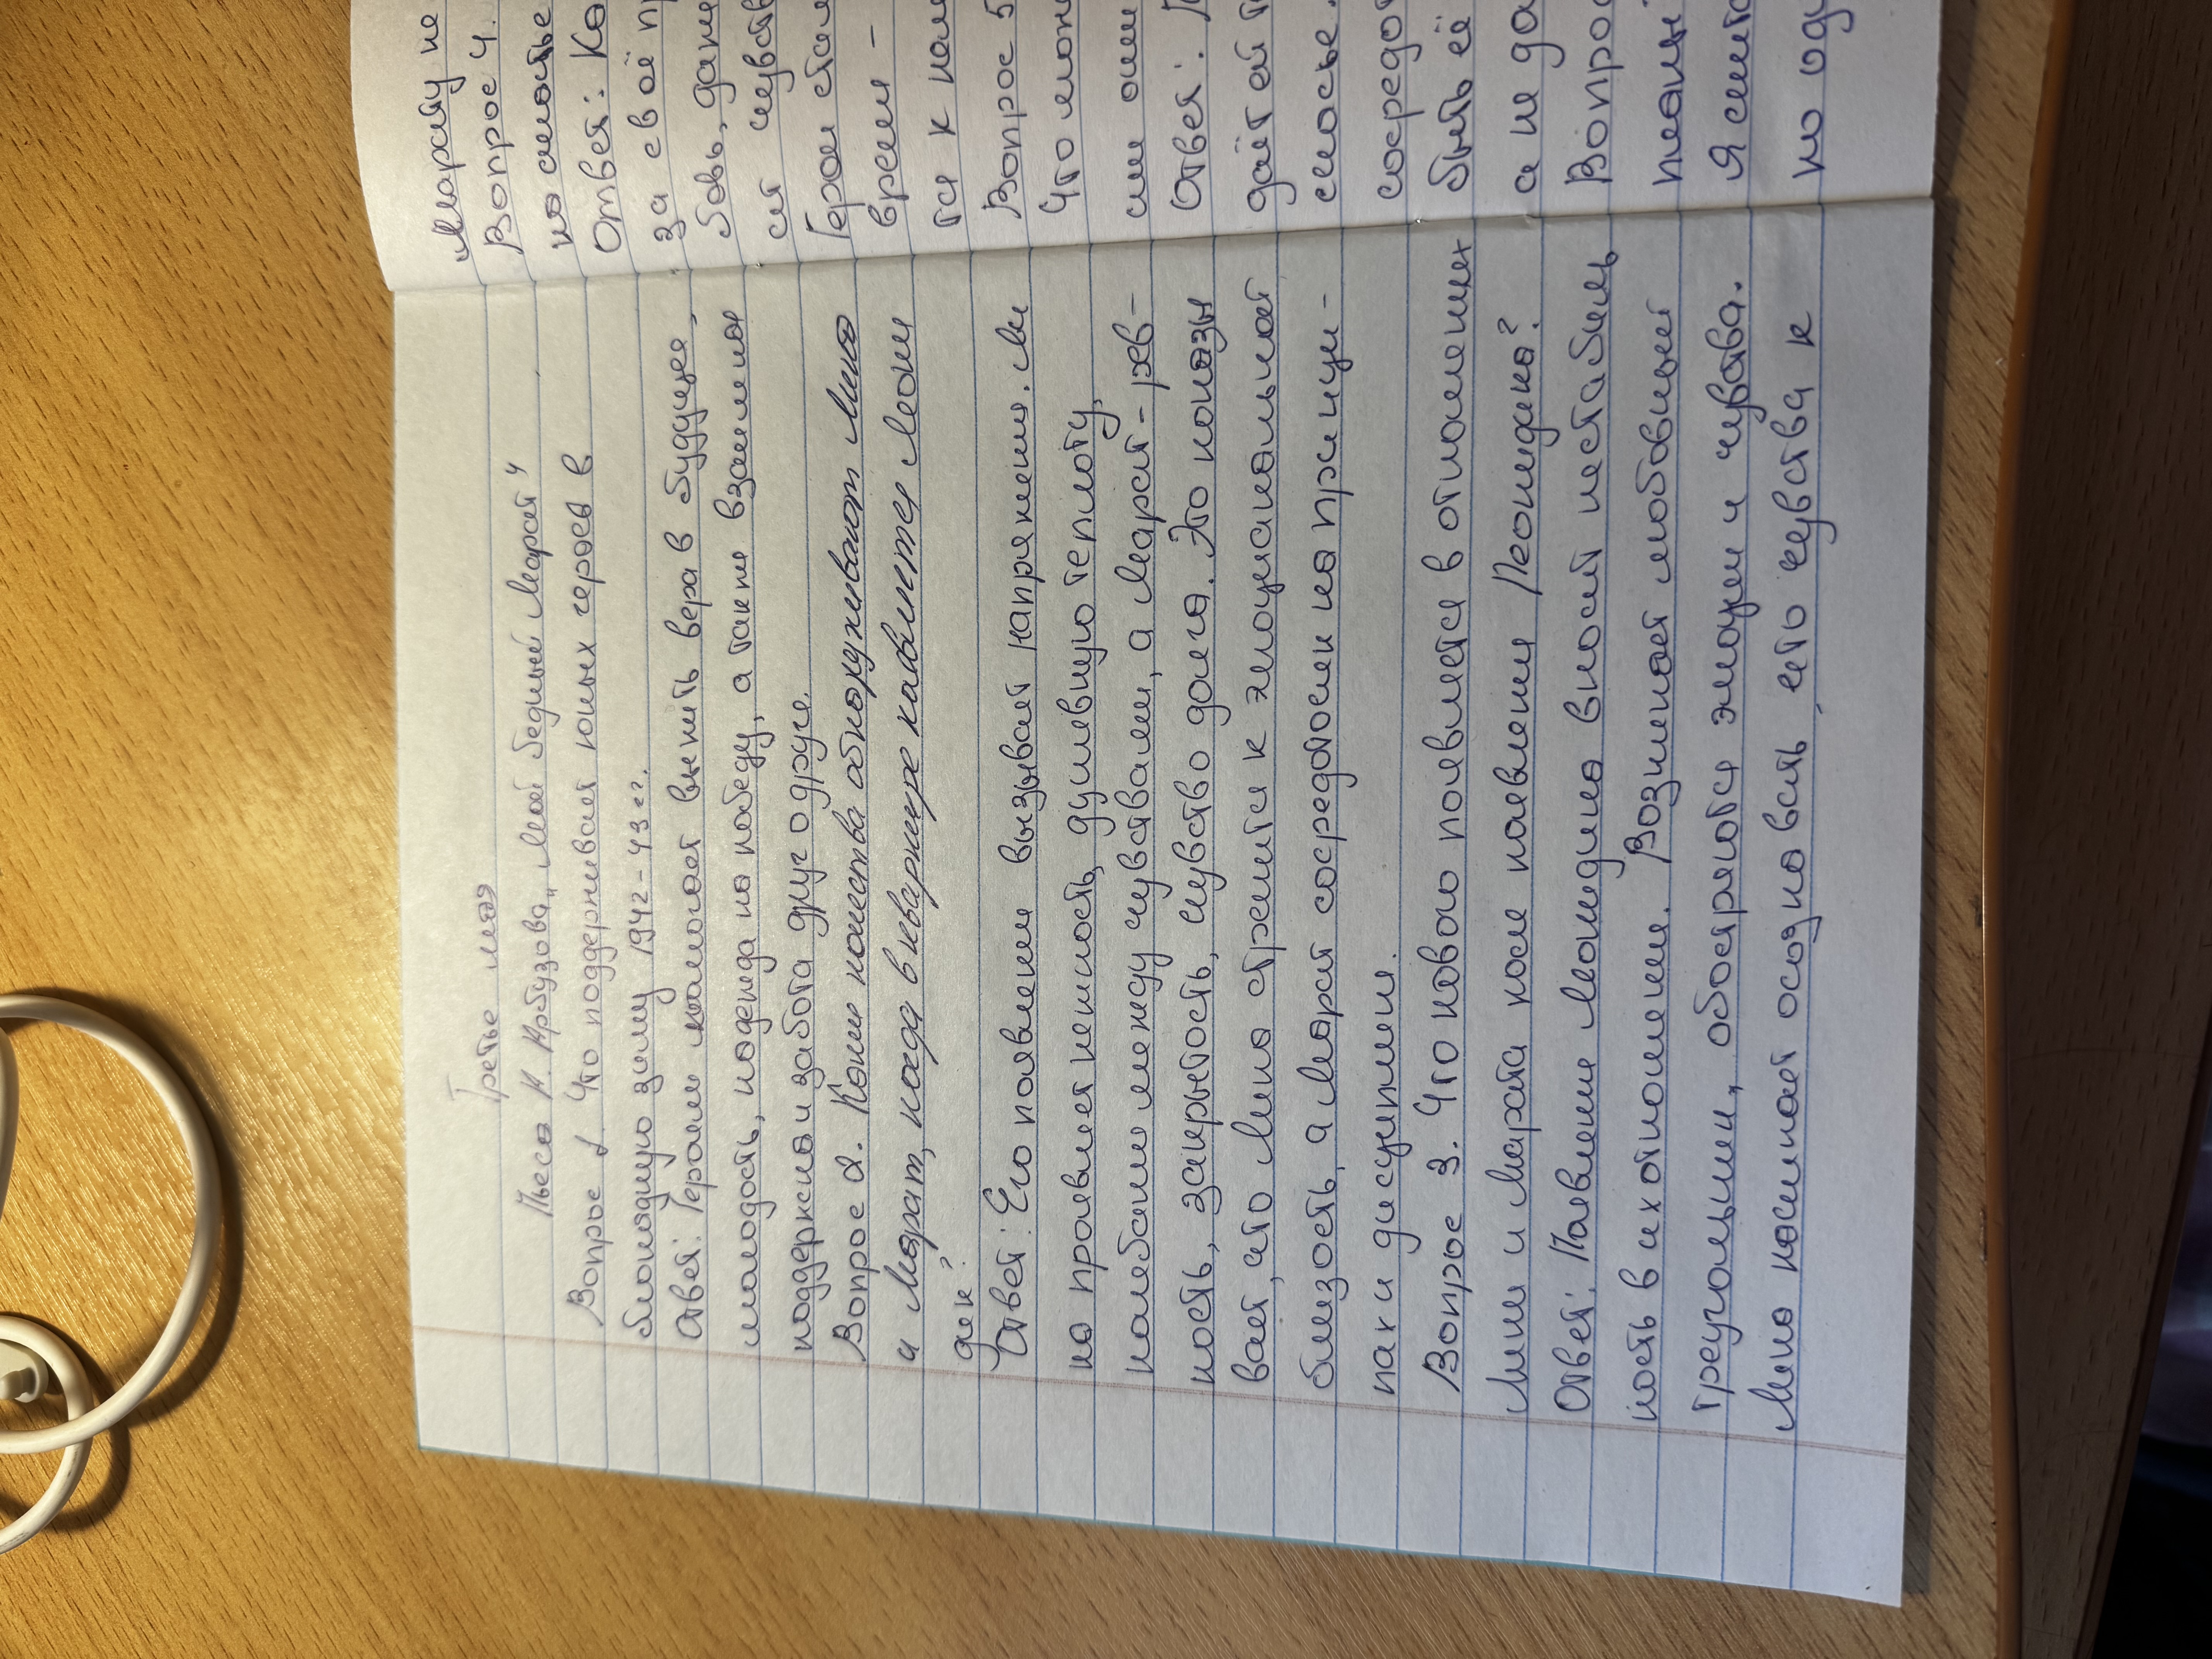 Третье мая
Пьеса А. Арбузова „Мой бедный Марат"
Вопрос 1. Что поддерживает юных героев в
блокадную зиму 1942-43 г?.
Ответ: Героям помогает выжить вера в будущее,
молодость, надежда на победу, а также взаимная
поддержка и забота друг о друге.
Вопрос 2. Какие качества обнаруживают Лика
и Марат, когда в квартире появляется Леони
дик?
Ответ: Его появление вызывает напряжения. Ли
ка проявляет нежность, душевную теплоту,
колебание между чувствами, а Марат - рев-
ность, закрытость, чувство долга. Это показы
вает, что Лика стремится к эмоциональной
близость, а Марат сосредоточен на принци-
пах и дисциплин.
Вопрос 3. Что нового появляется в отношениях
Лики и Марата после появлени Леонидика?
Ответ: Появление Леонидика вносит нестабиль
ность в их отношении. Возникает любовный
треугольник, обостряются эмоции и чувства.
Лика начинает осознавать, что чувства к
Марату не
Вопрос 4.
Ответ: Ка
за своё п
бовь, дани
Герои стал
времи -
ся к
Вопрос 5
Что
Ответ:
даёт ей
сосредо
быть её
а не да
Вопро
Я счит
но од